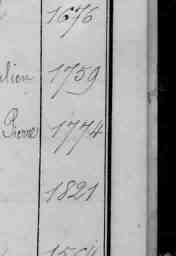 1676
lien 1759
Pierre 1774
1821